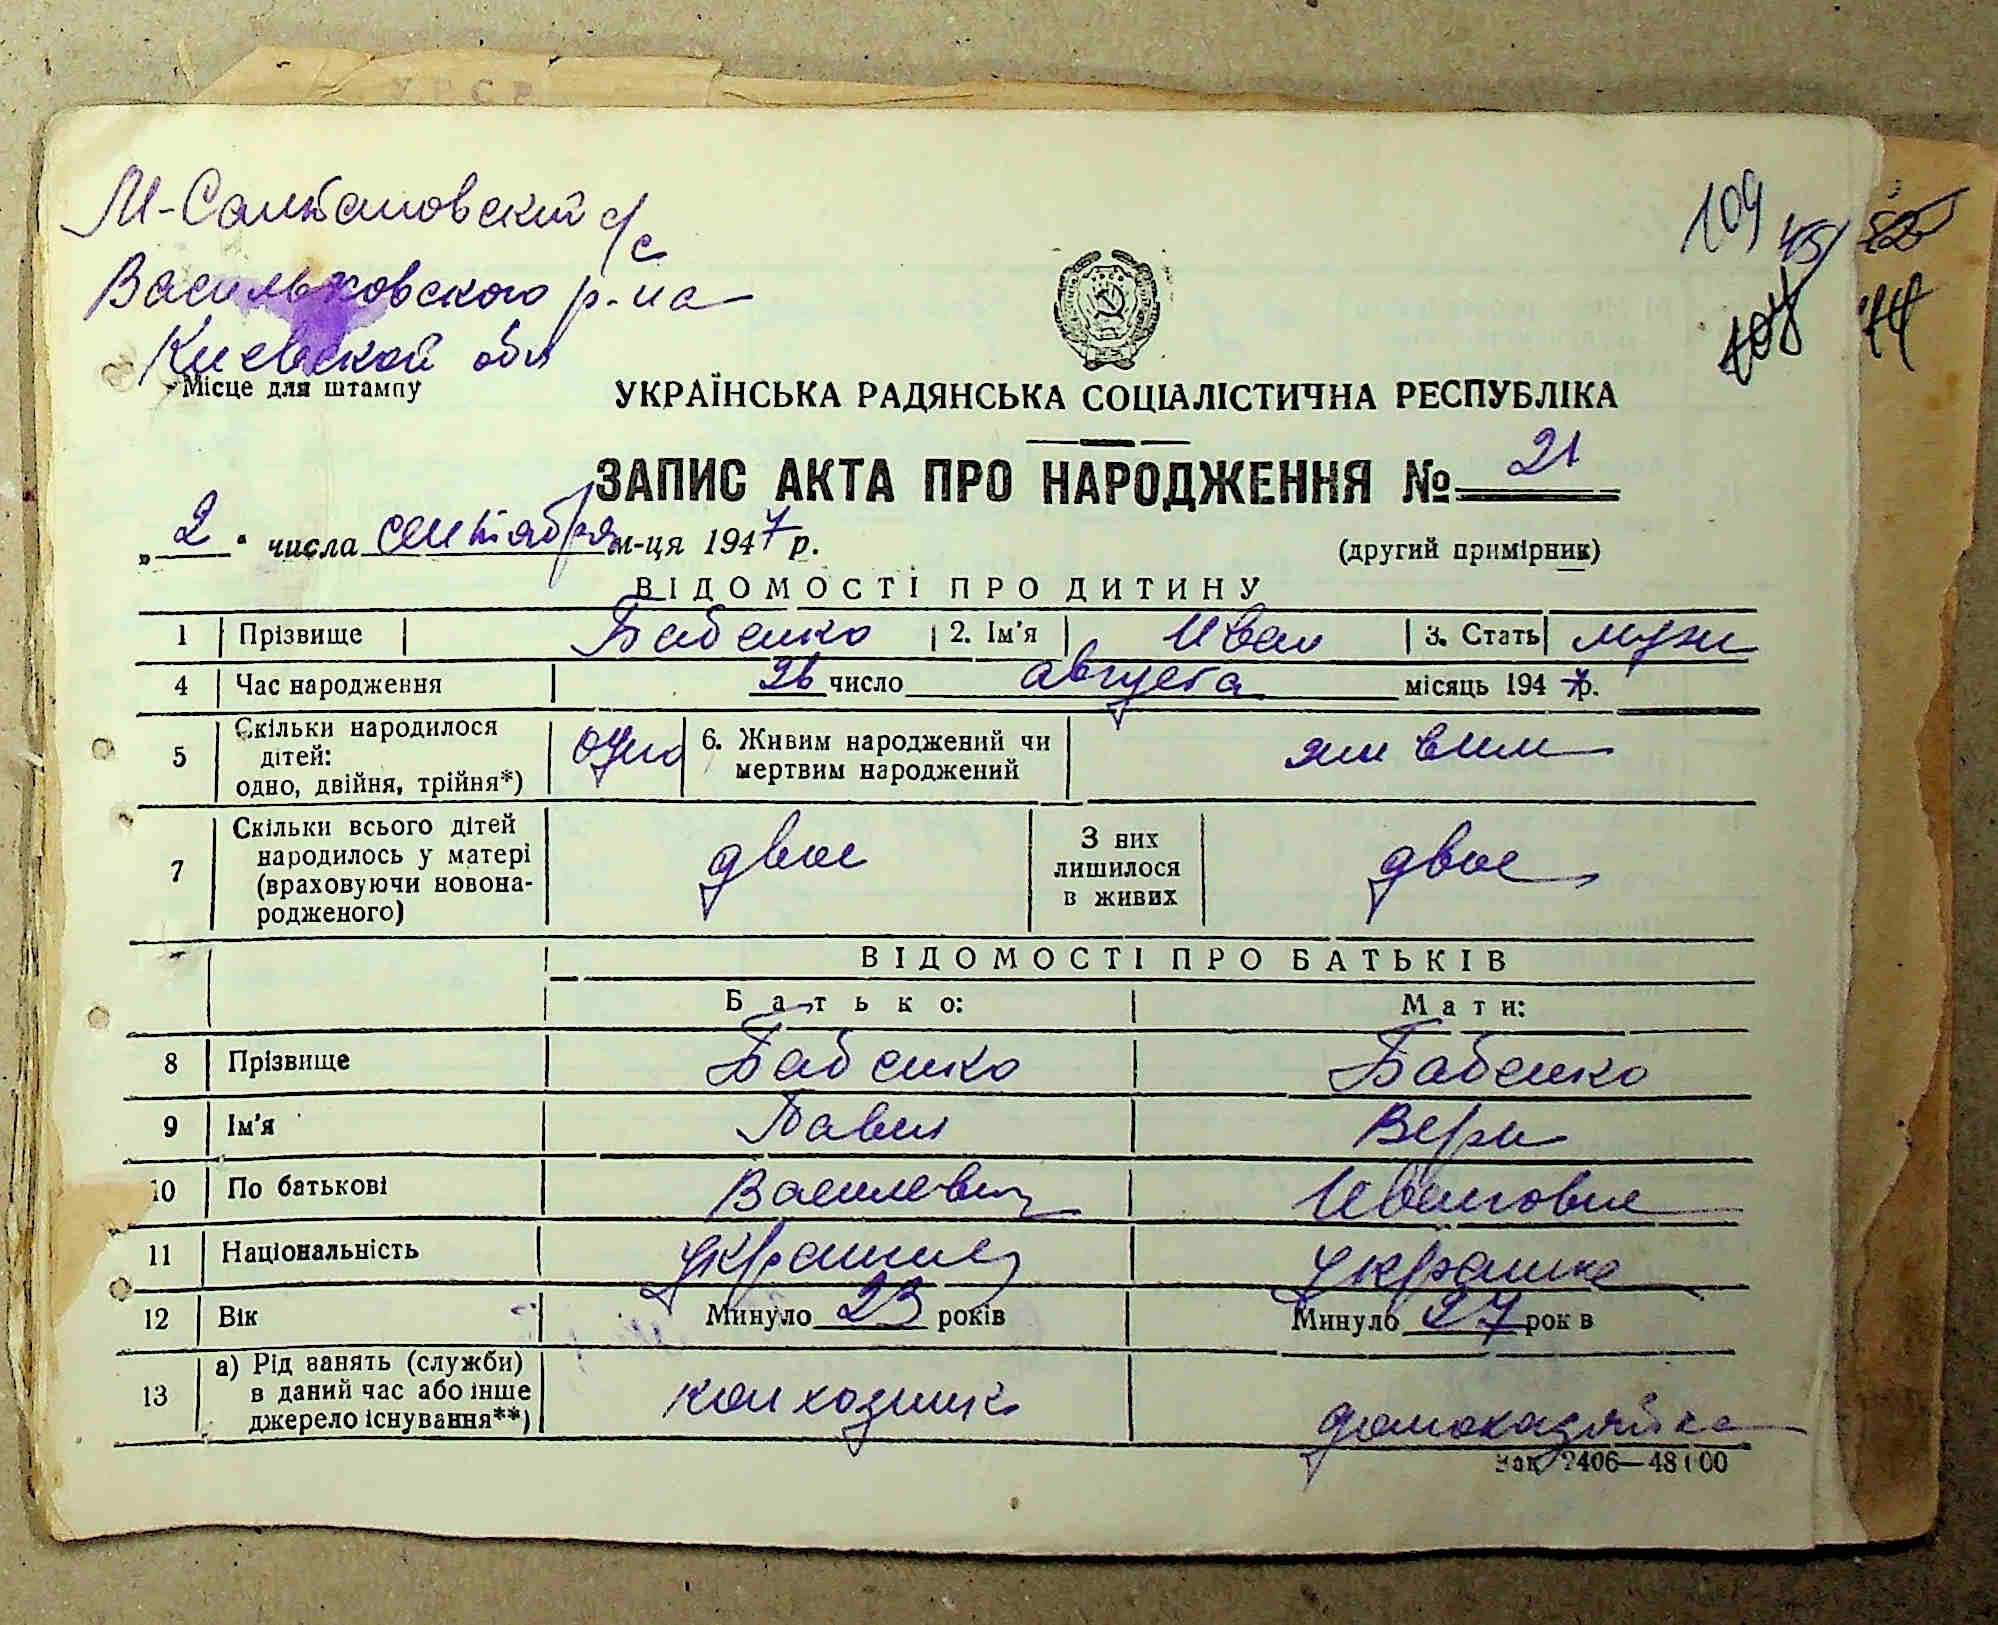 УРСР
М-Салтановский с/с
Васильковского р-на
Киевской обл
Місце для штампу
109 45
44
УКРАЇНСЬКА РАДЯНСЬКА СОЦІАЛІСТИЧНА РЕСПУБЛІКА
ЗАПИС АКТА ПРО НАРОДЖЕННЯ № 21
„2“ числа сентября м-ця 1947 р.
(другий примірник)
ВІДОМОСТІ ПРО ДИТИНУ
1 Прізвище Бабенко 2. Ім'я Иван 3. Стать муж
4 Час народження 26 число августа місяць 1947 р.
5 Скільки народилося дітей: одно, двійня, трійня*) одно 6. Живим народжений чи мертвим народжений живим
7 Скільки всього дітей народилось у матері (враховуючи новонародженого) двое З них лишилося в живих двое
ВІДОМОСТІ ПРО БАТЬКІВ
Батько: Мати:
8 Прізвище Бабенко Бабенко
9 Ім'я Павел Вера
10 По батькові Василевич Ивановна
11 Національність украинец украинка
12 Вік Минуло 23 років Минуло 27 рок в
13 а) Рід занять (служби) в даний час або інше джерело існування**) колхозник домохазяйка
Зак. 2406—48100